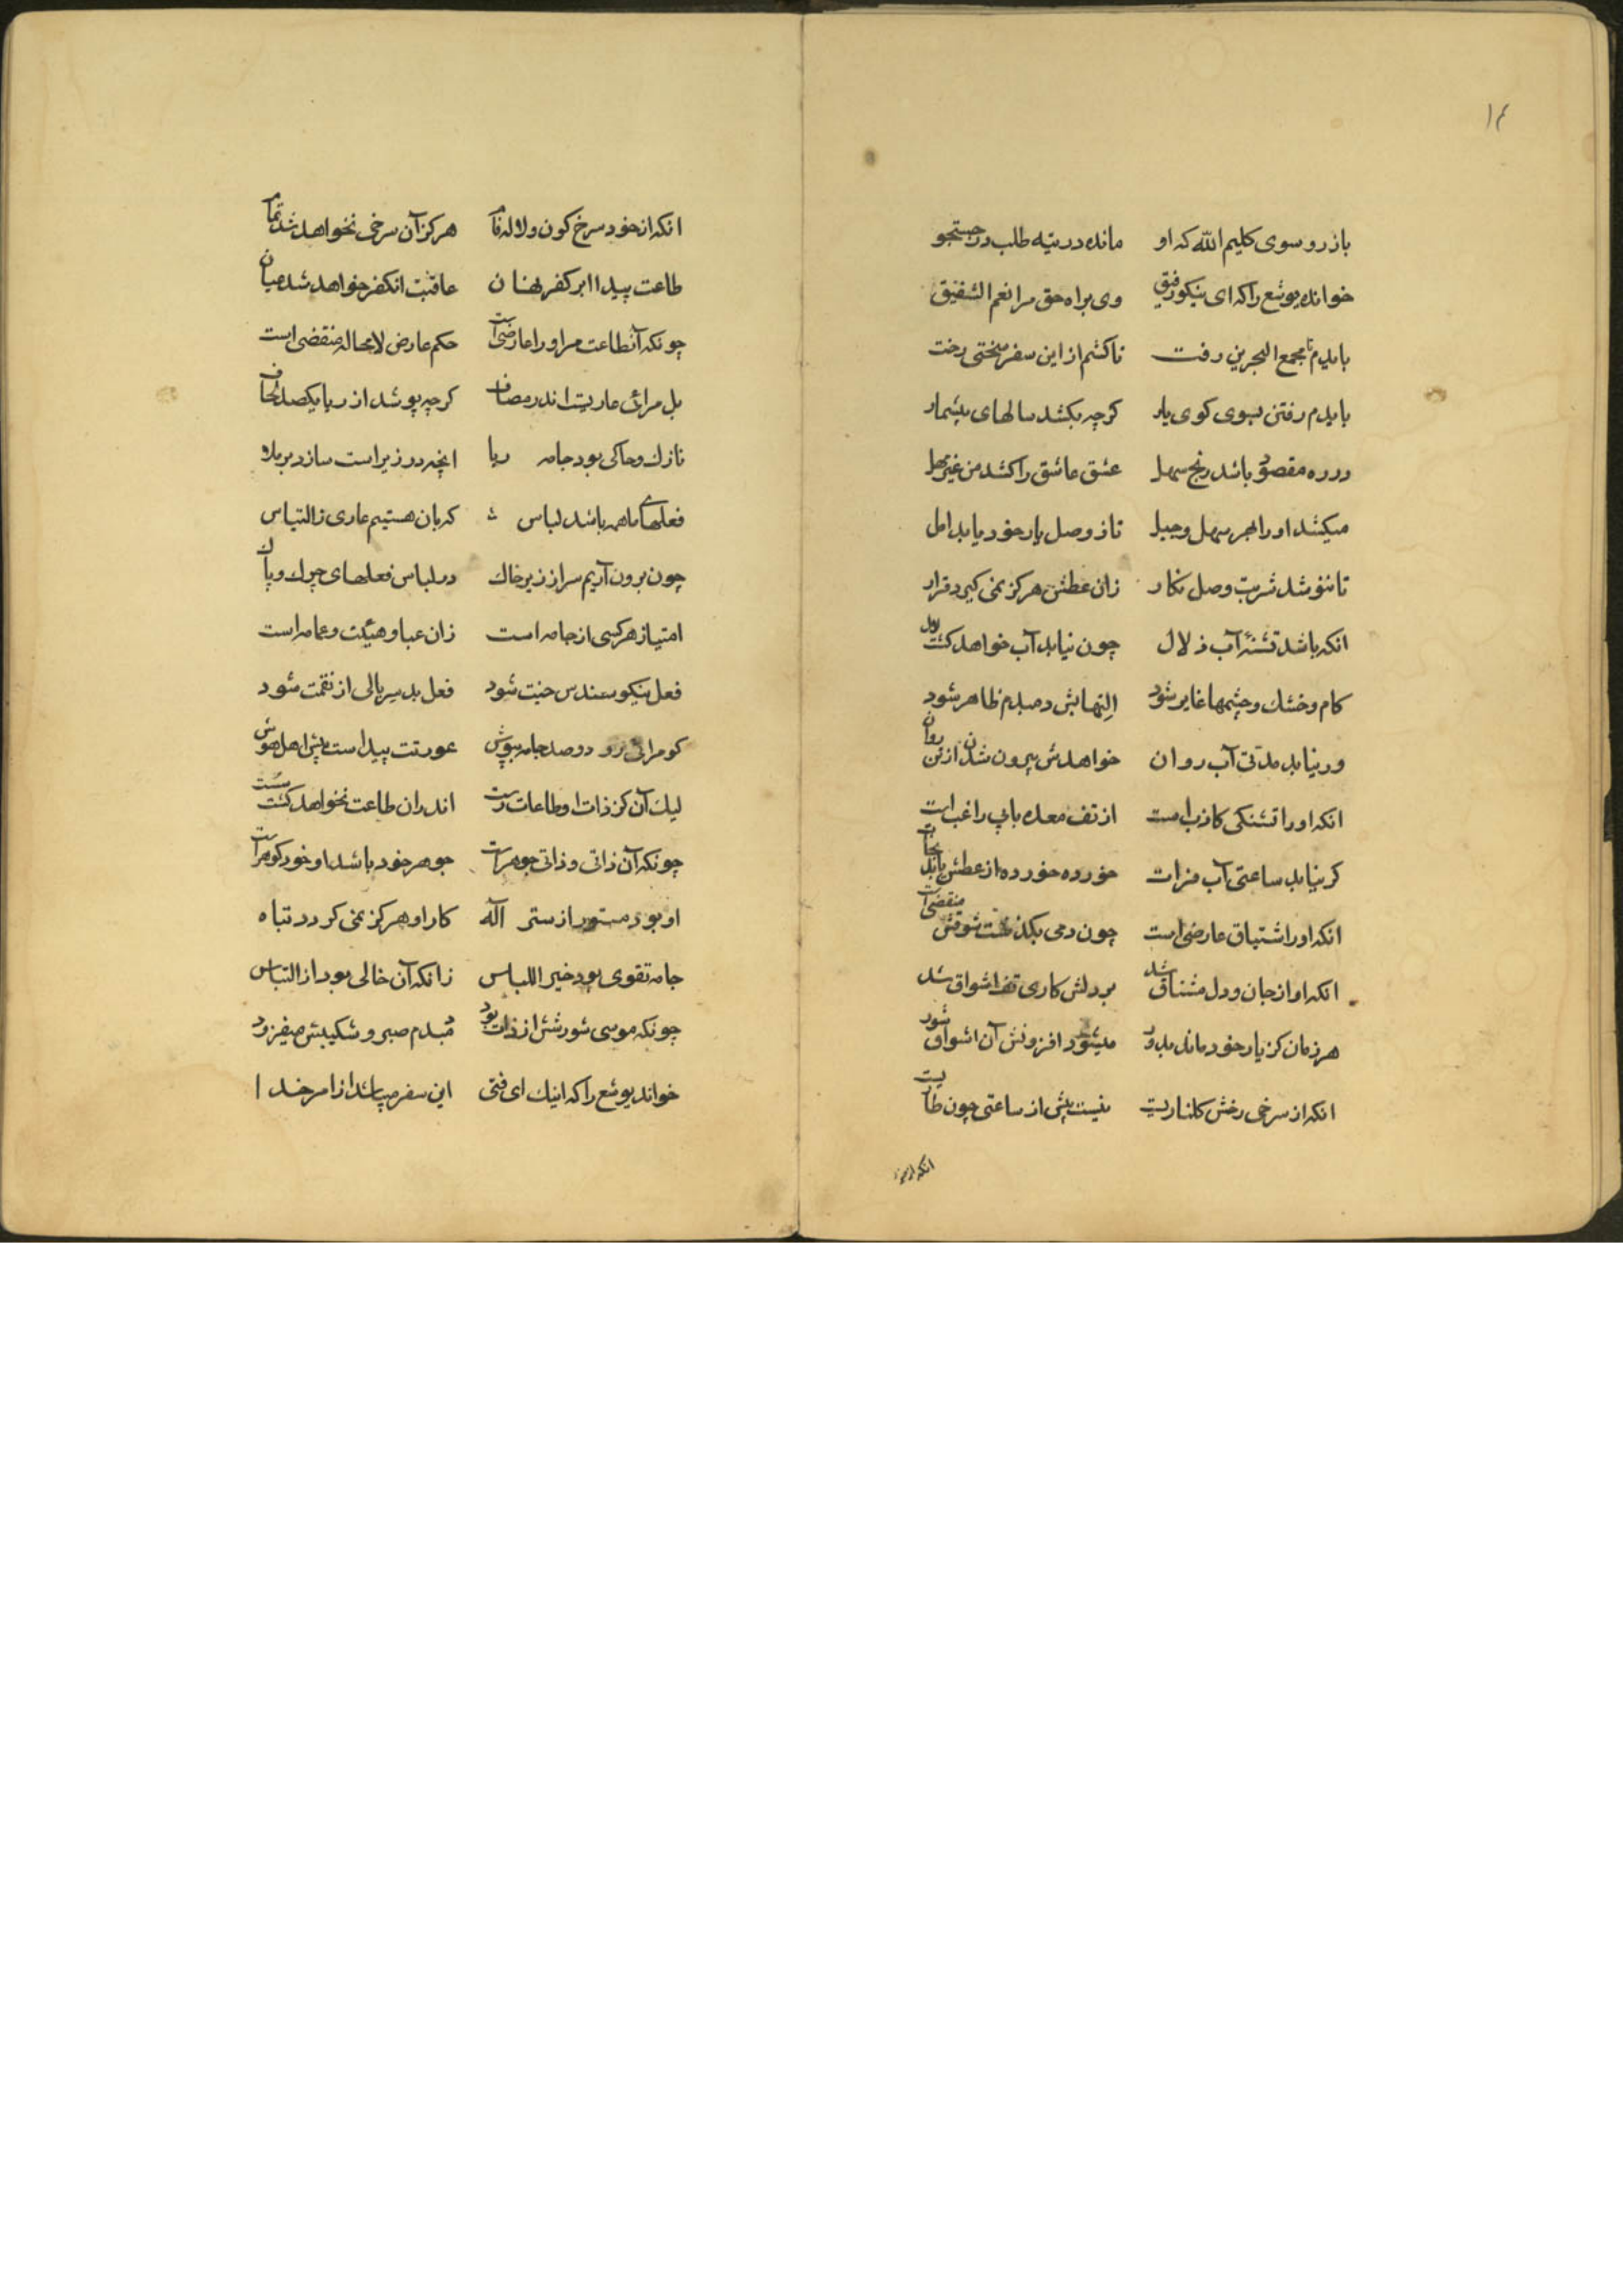 ۱۴
باز رو سوی کلیم الله که او مانده در تیه طلب در جستجو
خوانده یوشع را که ای نیکو رفیق وی براه حق مرا نعم الشفیق
بایدم تا مجمع البحرین رفت تا کشم از این سفر سختی رخت
بایدم رفتن بسوی کوی یار کرچه بکشد سالهای بیشمار
در ره مقصود باشد رنج سهل عشق عاشق را کشد من غیر مهل
میکشد او را بهر سهل و جبل تا ز وصل یار خود یابد امل
تا ننوشد شربت وصل نکار زان عطش هرکز نمی کیرد قرار
انکه باشد تشنه آب زلال چون نیابد آب خواهد کشت لال
کام و خشک و چشمها غایر شود التهابش دمبدم ظاهر شود
ور نیابد مدتی آب روان خواهدش بیرون شدن از تن روان
انکه او را تشنکی کاذب است از تف معده بآبی راغب است
کر نیابد ساعتی آب فرات خورده خورده از عطش یابد نجات
انکه او را اشتیاق عارضی است چون دمی بکذشت شوقش منقضی است
انکه او از جان و دل مشتاق شد بر دلش کاری تف اشواق شد
هر زمان کز یار خود ماند بدور میشود افزونش آن اشواق شور
انکه از سرخی رخش کلناریست نیست بیش از ساعتی چون طاریست
انکه از خود
انکه از خود سرخ کون و لاله فام هرکز آن سرخی نخواهد شد تمام
طاعت پیدا ابر کفر نهان عاقبت انکفر خواهد شد عیان
چونکه آنطاعت مر او را عارضی است حکم عارض لامحاله منقضی است
بل مرائی عاریست اندر مصاف کرچه پوشد از ریا یکصد لحاف
نازک و حاکی بود جامه ریا انچه در زیر است سازد بر ملا
فعلهای ما همه باشد لباس که بان هستیم عاری ز التباس
چون برون آریم سر از زیر خاک در لباس فعلهای چرک و پاک
امتیاز هر کسی از جامه است زان عبا و هیئت و عمامه است
فعل نیکو سندس جنت شود فعل بد سربالی از نقمت شود
کو مرائی رو دو صد جامه بپوش عورتت پیدا است پیش اهل هوش
لیک آن کز ذات او طاعات رست اندران طاعت نخواهد کشت سست
چونکه آن ذاتی و ذاتی جوهر است جوهر خود باشد او خود کوهر است
او بود مستور از ستر اله کار او هرکز نمی کردد تباه
جامه تقوی بود خیر اللباس زانکه آن خالی بود از التباس
چونکه موسی شورشش از ذات بود دمبدم صبر و شکیبش میفزود
خواند یوشع را که اینک ای فتی این سفر میباشد از امر خدا